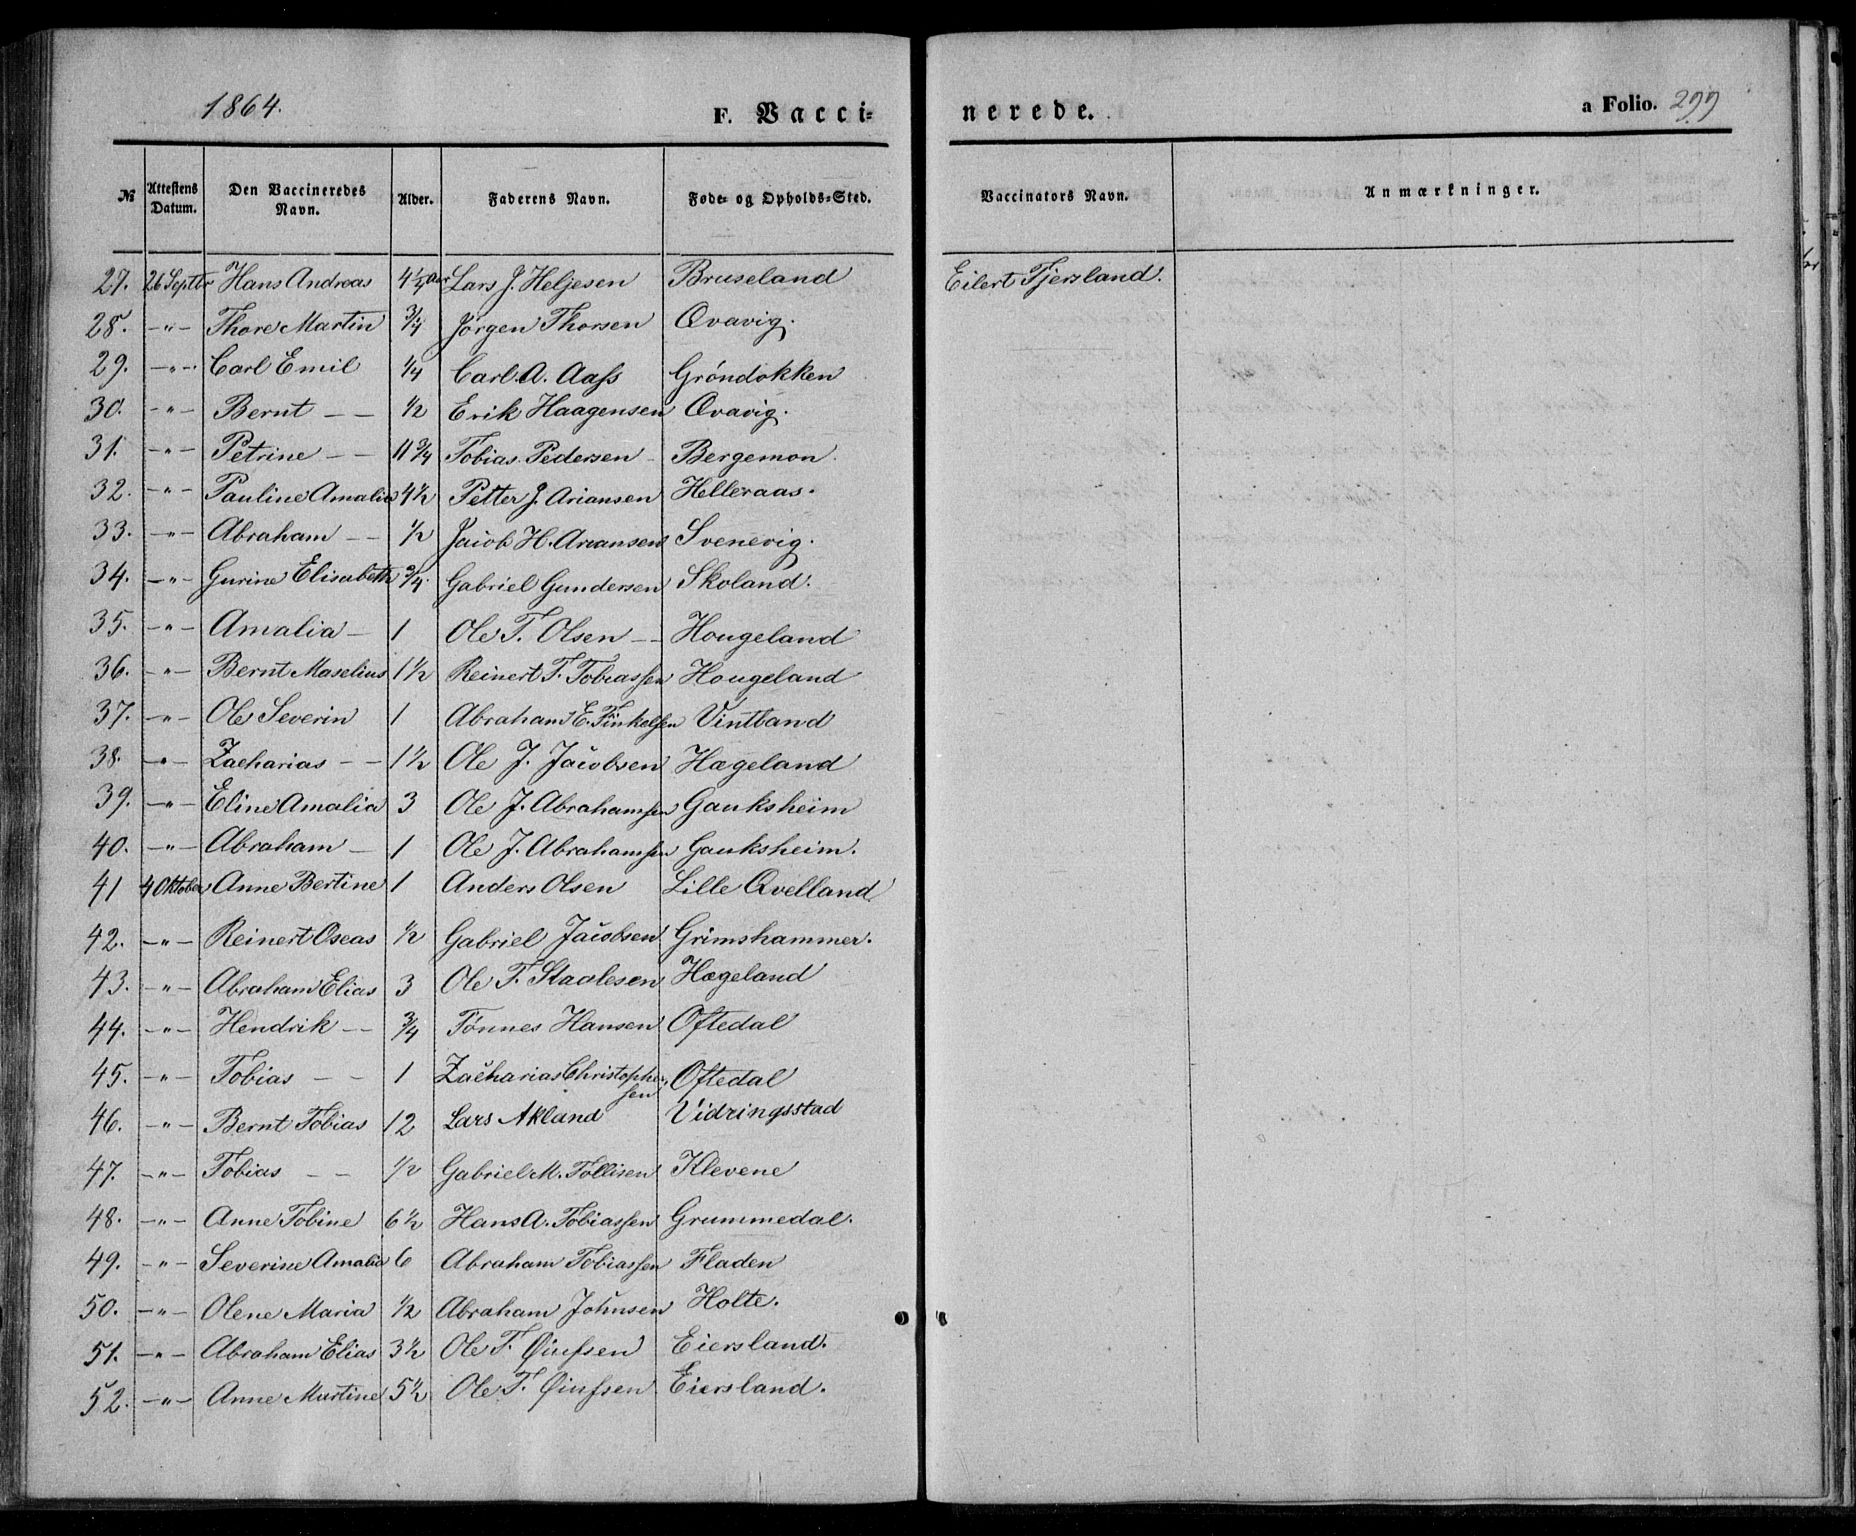 1864. F. Vacci= nerede. a Folio. 299
№ Attestens Datum. Den Vaccineredes Navn. Alder. Faderens Navn. Føde- og Opholds-Sted. Vaccinators Navn. Anmærkninger.
27. 26 Septbr Hans Andreas 4 1/2 Aar Lars J. Heljesen Bruseland Eilert Tjersland.
28. -"- Thore Martin 3/4 Jörgen Thorsen Qvavig.
29. -"- Carl Emil 1/4 Carl A. Aass Gröndokken
30. -"- Bernt -- 1/2 Erik Haagensen Qvavig.
31. -"- Petrine -- 11 3/4 Tobias Pedersen - Bergemon.
32. -"- Pauline Amalia 4 1/2 Petter J. Ariansen Helleraas.
33. -"- Abraham -- 1/2 Jacob H. Aransens Svenevig.
34. -"- Gurine Elisabeth 3/4. Gabriel Gundersen Skoland.
35. -"- Amalia - 1 Ole T. Olsen -- Hougeland
36. -"- Bernt Maselius 1 1/2 Reinert T. Tobiassen Hougeland
37. -"- Ole Severin 1 Abraham E. Finkelsen Vintland
38. -"- Zacharias -- 1 1/2 Ole J. Jacobsen Hægeland
39. -"- Eline Amalia 3 Ole J. Abrahamsen Gauksheim
40. -"- Abraham - 1 Ole J. Abrahamsen Gauksheim.
41 4 Oktober Anne Bertine 1 Anders Olsen Lille Qvelland.
42. -"- Reinert Oseas 1/2 Gabriel Jacobsen Grimshammer.
43. -"- Abraham Elias 3 Ole T. Staalesen Hægeland
44. -"- Hendrik -- 3/4 Tönnes Hansen Oftedal
45. -"- Tobias -- 1 Zacharias Christopher- Oftedal
sen
46. -"- Bernt Tobias 12 Lars Akland Vidringsstad
47. -"- Tobias -- 1/2 Gabriel M. Tollisen Klevene
48. -"- Anne Tobine 6 1/2 Hans A. Tobiassen Grummedal.
49. -"- Severine Amalia 6 Abraham Tobiassen Fladen
50. -"- Olene Maria 1/2 Abraham Johnsen Holte.
51. -"- Abraham Elias 3 1/2 Ole T. Øiufsen Eiersland.
52. -"- Anne Martine 5 1/2 Ole T. Øiufsen Eiersland.